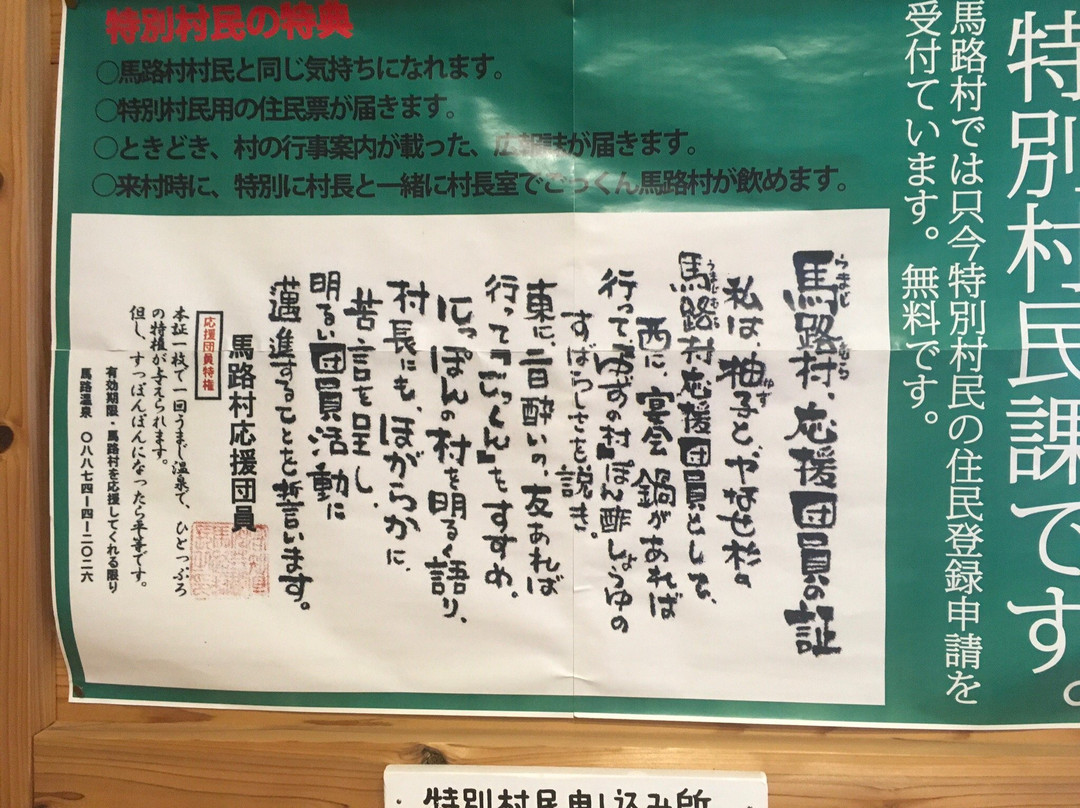 特別村民課です。
馬路村では只今特別村民の住民登録申請を
受付ています。無料です。
特別村民の特典
○馬路村村民と同じ気持ちになれます。
○特別村民用の住民票が届きます。
○ときどき、村の行事案内が載った、広報誌が届きます。
○来村時に、特別に村長と一緒に村長室でごっくん馬路村が飲めます。
馬路村、応援団員の証
うまじ むら
私は、柚子と、やなせ杉と
ゆず
馬路村応援団員として、
うまじむら
西に、宴会鍋があれば
行って『ゆずの村』ぽん酢しょうゆの
すばらしさを説き。
東に、二日酔いの友あれば
行って『ごっくん』をすすめ。
にっぽんの村を明るく語り、
村長にも、ほがらかに、
苦言を呈し、
明るい団員活動に
邁進することを誓います。
馬路村応援団員
応援団員特権
本証一枚で一回うまじ温泉で、ひとっぷろ
の特権が与えられます。
但し、すっぽんぽんになったら平等です。
有効期限・馬路村を応援してくれる限り
馬路温泉 〇八八七四-四-二〇二六
特別村民申し込み所